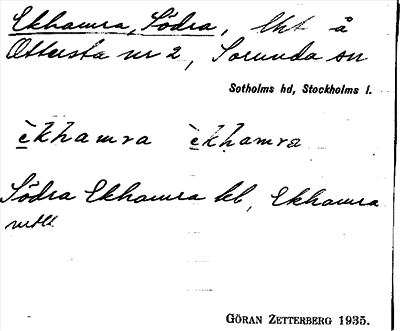 Ekhamra, Södra, lht å
Ottersta nr 2, Sorunda sn
Sotholms hd, Stockholms l.
èkhamra èkhamra
Södra Ekhamra kl, Ekhamra
GÖRAN ZETTERBERG 1935.